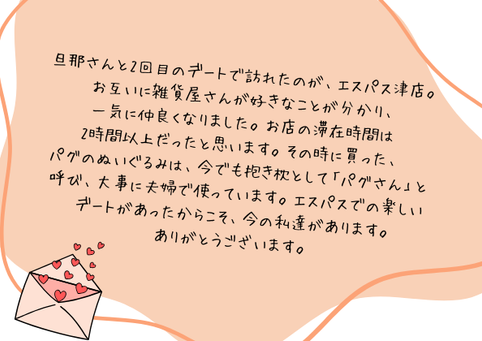 旦那さんと2回目のデートで訪れたのが、エスパス津店。
お互いに雑貨屋さんが好きなことが分かり、
一気に仲良くなりました。お店の滞在時間は
2時間以上だったと思います。その時に買った、
パグのぬいぐるみは、今でも抱き枕として「パグさん」と
呼び、大事に夫婦で使っています。エスパスでの楽しい
デートがあったからこそ、今の私達があります。
ありがとうございます。